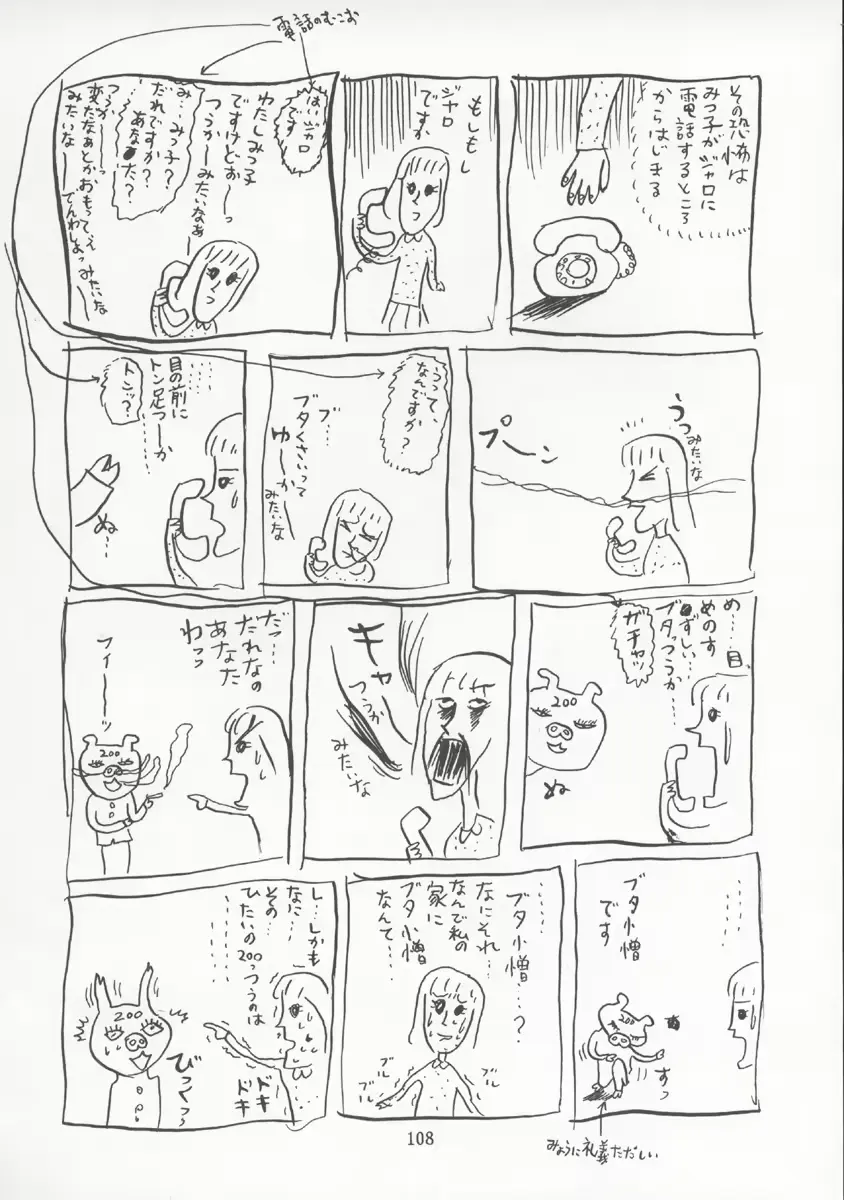 電話のむこお
その恐怖は
みつ子がジャロに
電話するところ
からはじまる
もしもし
ジャロ
ですか
はいジャロ
です
わたしみつ子
ですけどおーっ
つうかーみたいなあー
み…みつ子?
だれですか?
あなた?
……
つうかーっ
変だなあとかおもってえ
みたいなー
でんわしよっみたいな
うっ
みたいな
プ〜ン
うって、
なんですか?
ブ…
ブタくさいって
ゆーか
みたいな
……
目の前に
トン足つーか
……
トンッ?
ぬ…
め…目、
めのす
ずしい…
ブタっつうか…
ガチャッ
200
ぬ
キャー
つうか
みたいな
だっ…
だれなの
あなた
わっっ
フィーーッ
200
……
ブタ小憎
です
200
すっ
みょうに礼義ただしい
……
ブタ小憎…?
なにそれ…
なんで私の
家に
ブタ小憎
なんて……
ブル
ブル
ブル
ブル
し…しかも
なに…
その…
ひたいの200っつうのは
……
200
びくっっ
ドキ
ドキ
108